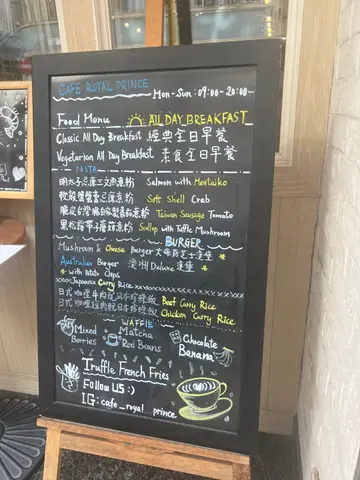 CAFE ROYAL PRINCE
Mon-Sun: 09:00-20:00
Food Menu
ALL DAY BREAKFAST
Classic All Day Breakfast 經典全日早餐
Vegetarian All Day Breakfast 素食全日早餐
PASTA
明太子忌廉三文魚意粉 Salmon with Mentaiko
軟殼蟹蟹膏忌廉意粉 Soft Shell Crab
Taiwan Sausage Tomato
黑松露帶子蘑菇意粉 Scallop with Truffle Mushroom
BURGER
Mushroom & Cheese Burger 大啡菇芝士漢堡
Australian Burger 澳洲 Deluxe 漢堡
with potato chips
Japanese Curry Rice
日式咖哩牛肉配日本珍珠飯 Beef Curry Rice
日式咖哩雞肉配日本珍珠飯 Chicken Curry Rice
WAFFLE
Mixed Berries
Matcha Red Beans
Chocolate Banana
Truffle French Fries
Follow US :)
IG: cafe_royal prince